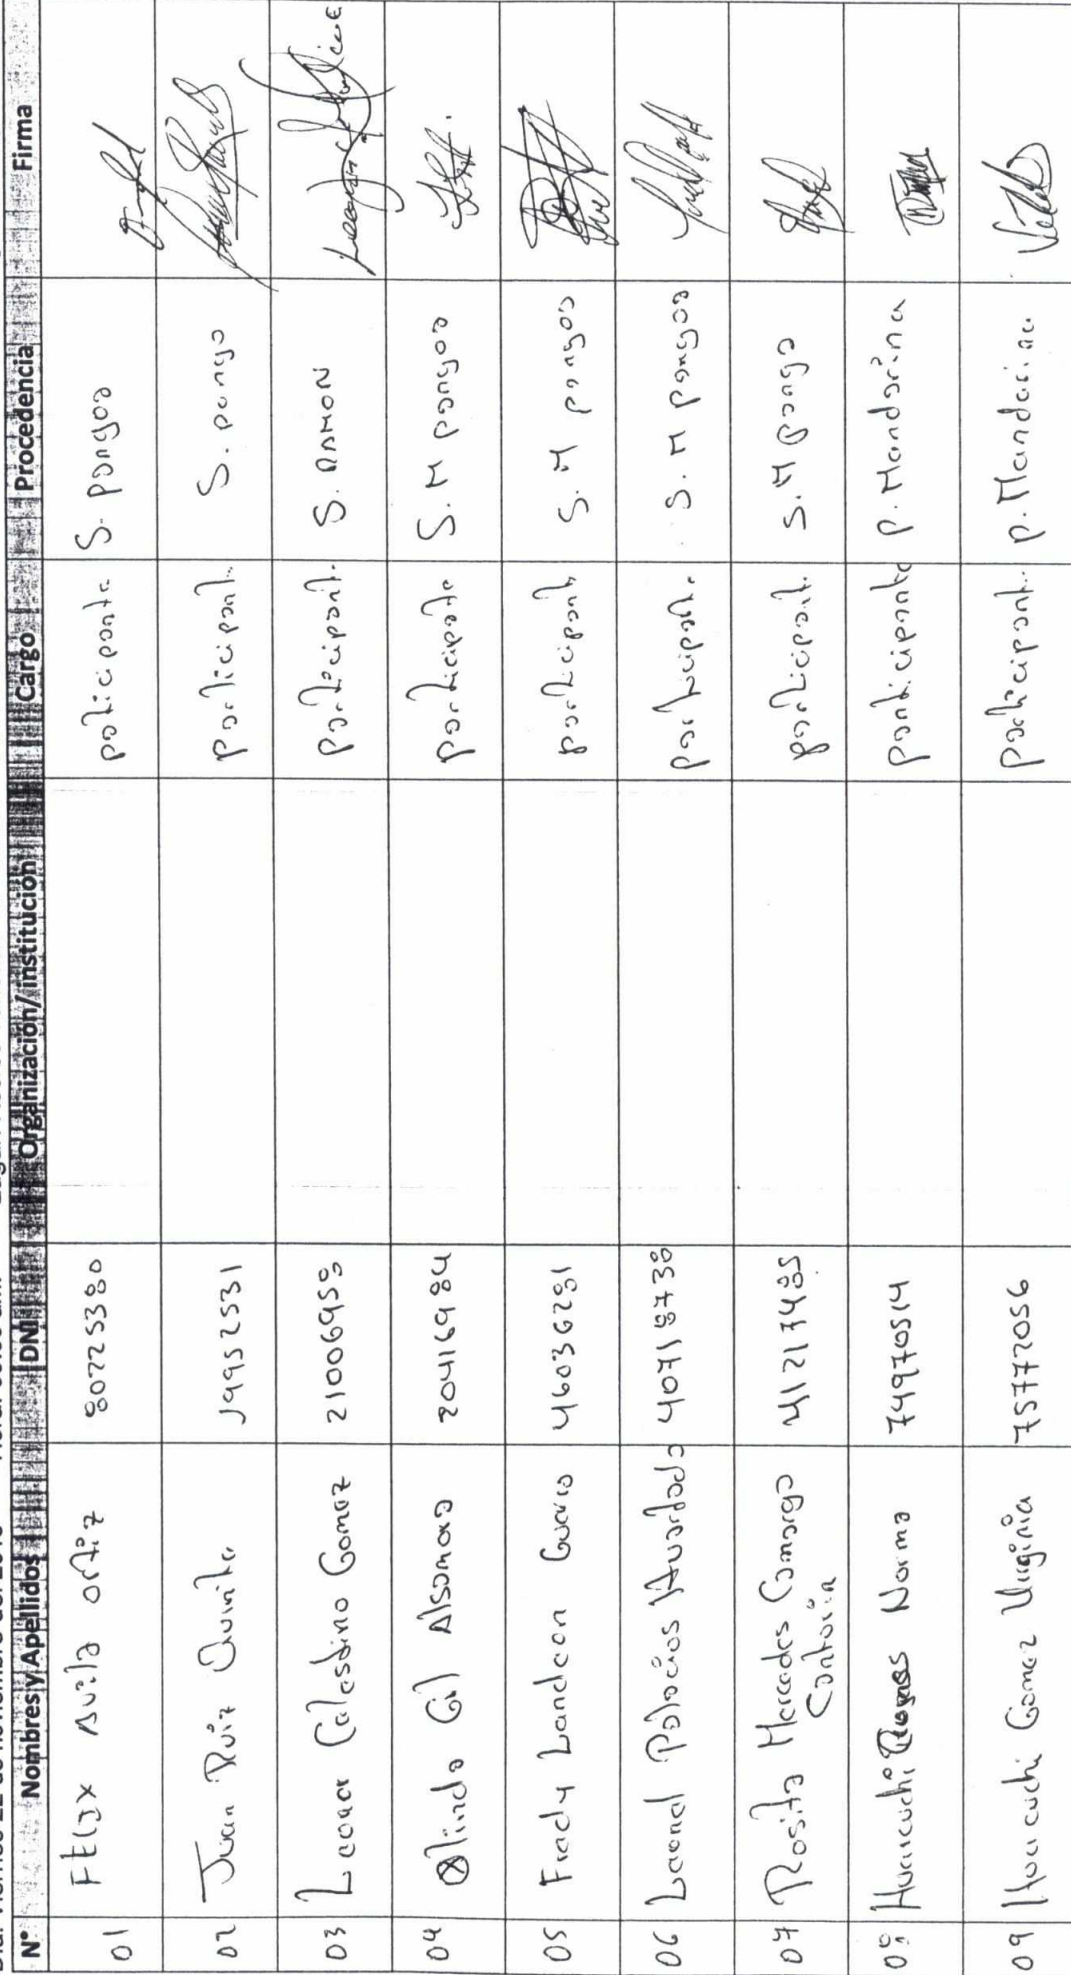 N° Nombres y Apellidos DNI Organización/institución Cargo Procedencia Firma
01 FELIX AVILA ORTIZ 80225380 participante S. pangoa
02 Juan Ruiz Quinte 19952531 participant. S. pango
03 Leonor Celestino Gomez 21006955 participant. S. RAMON
04 Olindo Gil 20416984 participante S. M pangoa
05 Fredy Landeon 46036281 participant. S. M pangoa
06 Leonel Palacios 40718738 participant. S. M pangoa
07 Rosita Mercedes Camargo 41217485 participant. S. M pango
08 Huaicuchi Norma 74970514 participante P. Mandarina
09 Huaicuchi Gomez Virginia 75772056 participant. p. Mandarina